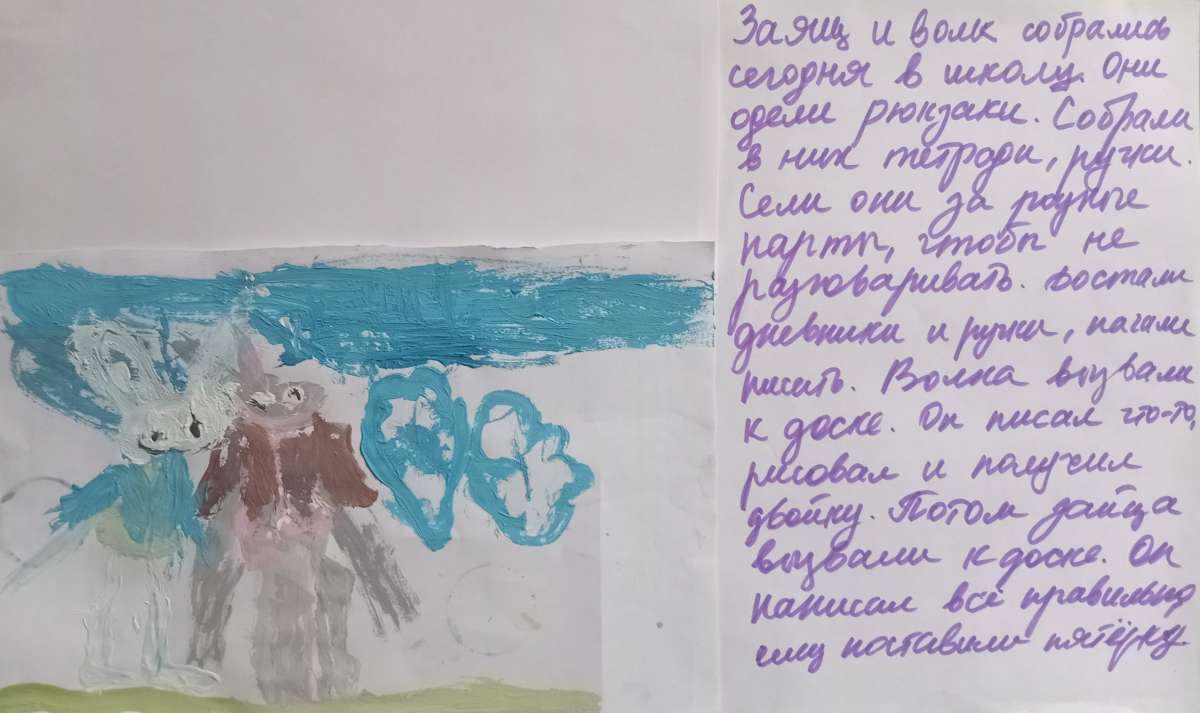 Заяц и волк собрались
сегодня в школу. Они
одели рюкзаки. Собрали
в них тетради, ручки.
Сели они за разные
парты, чтобы не
разговаривать. Достали
дневники и ручки, начали
писать. Волка вызвали
к доске. Он писал что-то,
рисовал и получил
двойку. Потом зайца
вызвали к доске. Он
написал всё правильно
ему поставили пятёрку.